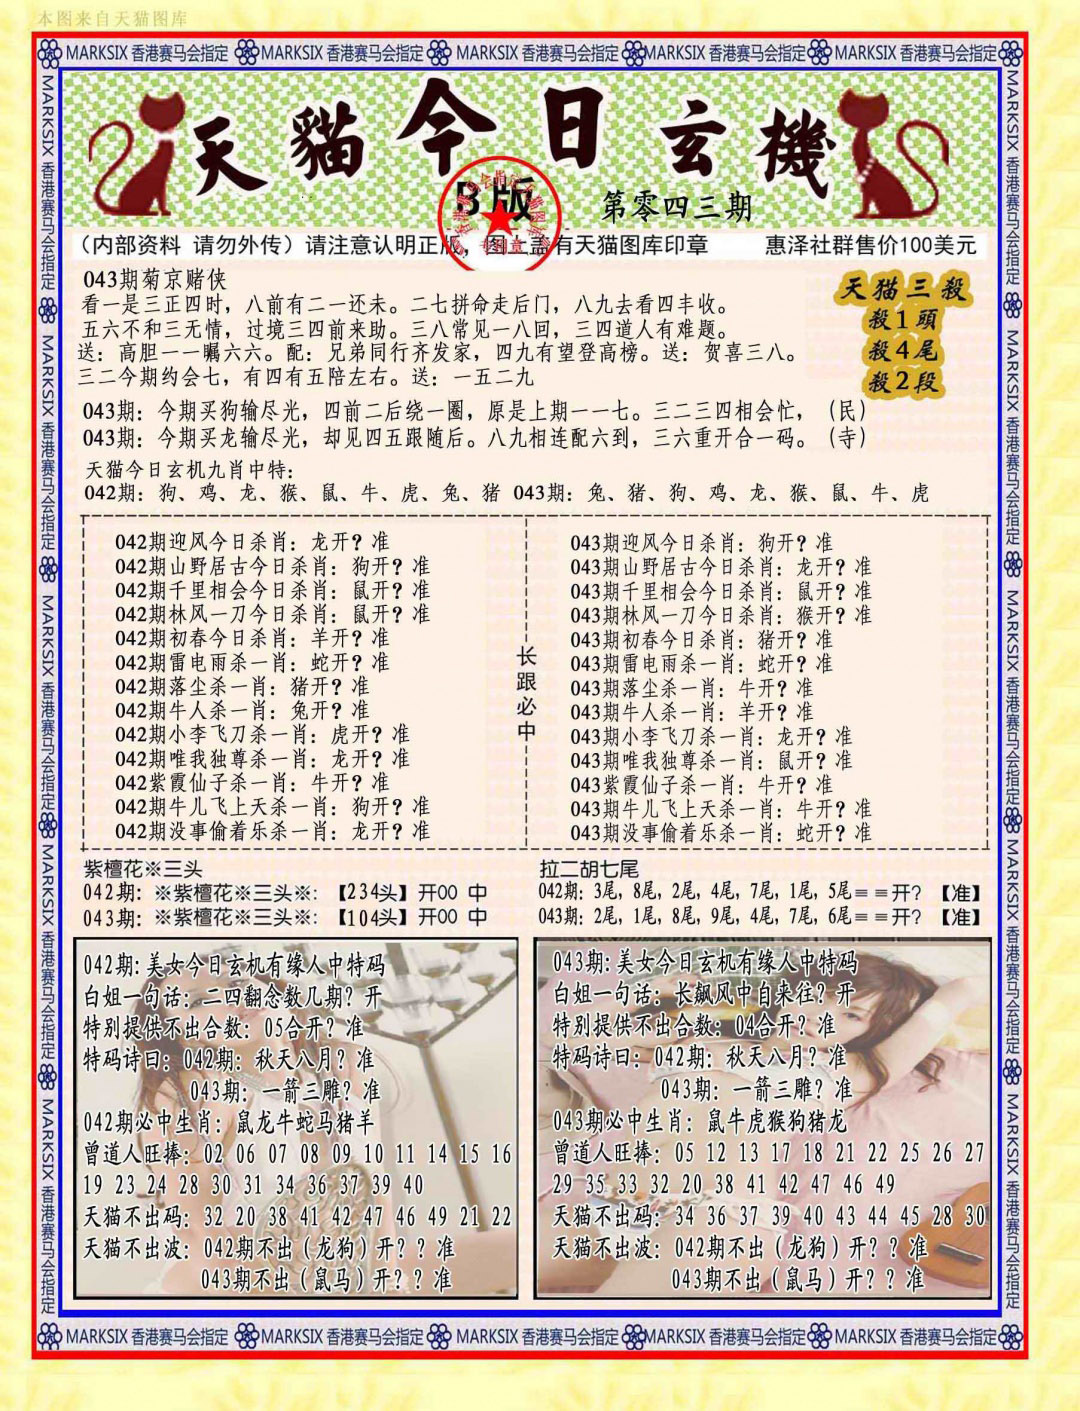 本图来自天猫图库
MARKSIX 香港赛马会指定 MARKSIX 香港赛马会指定 MARKSIX 香港赛马会指定 MARKSIX 香港赛马会指定 MARKSIX 香港赛马会指定
天貓今日玄機
B版
第零四三期
（内部资料 请勿外传）请注意认明正版，图上盖有天猫图库印章 惠泽社群售价100美元
043期菊京赌侠
看一是三正四时，八前有二一还未。二七拼命走后门，八九去看四丰收。
五六不和三无情，过境三四前来助。三八常见一八回，三四道人有难题。
送：高胆一一嘱六六。配：兄弟同行齐发家，四九有望登高榜。送：贺喜三八。
三二今期约会七，有四有五陪左右。送：一五二九
天猫三殺
殺1頭
殺4尾
殺2段
043期：今期买狗输尽光，四前二后绕一圈，原是上期一一七。三二三四相会忙，（民）
043期：今期买龙输尽光，却见四五跟随后。八九相连配六到，三六重开合一码。（寺）
天猫今日玄机九肖中特：
042期：狗、鸡、龙、猴、鼠、牛、虎、兔、猪 043期：兔、猪、狗、鸡、龙、猴、鼠、牛、虎
042期迎风今日杀肖：龙开？准
042期山野居古今日杀肖：狗开？准
042期千里相会今日杀肖：鼠开？准
042期林风一刀今日杀肖：鼠开？准
042期初春今日杀肖：羊开？准
042期雷电雨杀一肖：蛇开？准
042期落尘杀一肖：猪开？准
042期牛人杀一肖：兔开？准
042期小李飞刀杀一肖：虎开？准
042期唯我独尊杀一肖：龙开？准
042紫霞仙子杀一肖：牛开？准
042期牛儿飞上天杀一肖：狗开？准
042期没事偷着乐杀一肖：龙开？准
长跟必中
043期迎风今日杀肖：狗开？准
043期山野居古今日杀肖：龙开？准
043期千里相会今日杀肖：鼠开？准
043期林风一刀今日杀肖：猴开？准
043期初春今日杀肖：猪开？准
043期雷电雨杀一肖：蛇开？准
043期落尘杀一肖：牛开？准
043期牛人杀一肖：羊开？准
043期小李飞刀杀一肖：龙开？准
043期唯我独尊杀一肖：鼠开？准
043紫霞仙子杀一肖：牛开？准
043期牛儿飞上天杀一肖：牛开？准
043期没事偷着乐杀一肖：蛇开？准
紫檀花※三头
042期：※紫檀花※三头※：【234头】开00 中
043期：※紫檀花※三头※：【104头】开00 中
拉二胡七尾
042期：3尾，8尾，2尾，4尾，7尾，1尾，5尾＝＝开？【准】
043期：2尾，1尾，8尾，9尾，4尾，7尾，6尾＝＝开？【准】
042期:美女今日玄机有缘人中特码
白姐一句话：二四翻念数几期？开
特别提供不出合数：05合开？准
特码诗曰：042期：秋天八月？准
043期：一箭三雕？准
042期必中生肖：鼠龙牛蛇马猪羊
曾道人旺捧：02 06 07 08 09 10 11 14 15 16
19 23 24 28 30 31 34 36 37 39 40
天猫不出码：32 20 38 41 42 47 46 49 21 22
天猫不出波：042期不出（龙狗）开？？准
043期不出（鼠马）开？？准
043期:美女今日玄机有缘人中特码
白姐一句话：长飙风中自来往？开
特别提供不出合数：04合开？准
特码诗曰：042期：秋天八月？准
043期：一箭三雕？准
043期必中生肖：鼠牛虎猴狗猪龙
曾道人旺捧：05 12 13 17 18 21 22 25 26 27
29 35 33 32 20 38 41 42 47 46 49
天猫不出码：34 36 37 39 40 43 44 45 28 30
天猫不出波：042期不出（龙狗）开？？准
043期不出（鼠马）开？？准
MARKSIX 香港赛马会指定 MARKSIX 香港赛马会指定 MARKSIX 香港赛马会指定 MARKSIX 香港赛马会指定 MARKSIX 香港赛马会指定